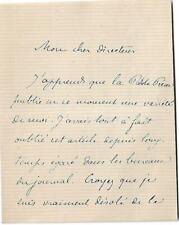 Mon cher Directeur
J'apprends que la Petite Presse
publie en ce moment une nouvelle
de moi. J'avais tout à fait
oublié cet article depuis long-
temps égaré dans les bureaux
du journal. Croyez que je
suis vraiment désolé de la